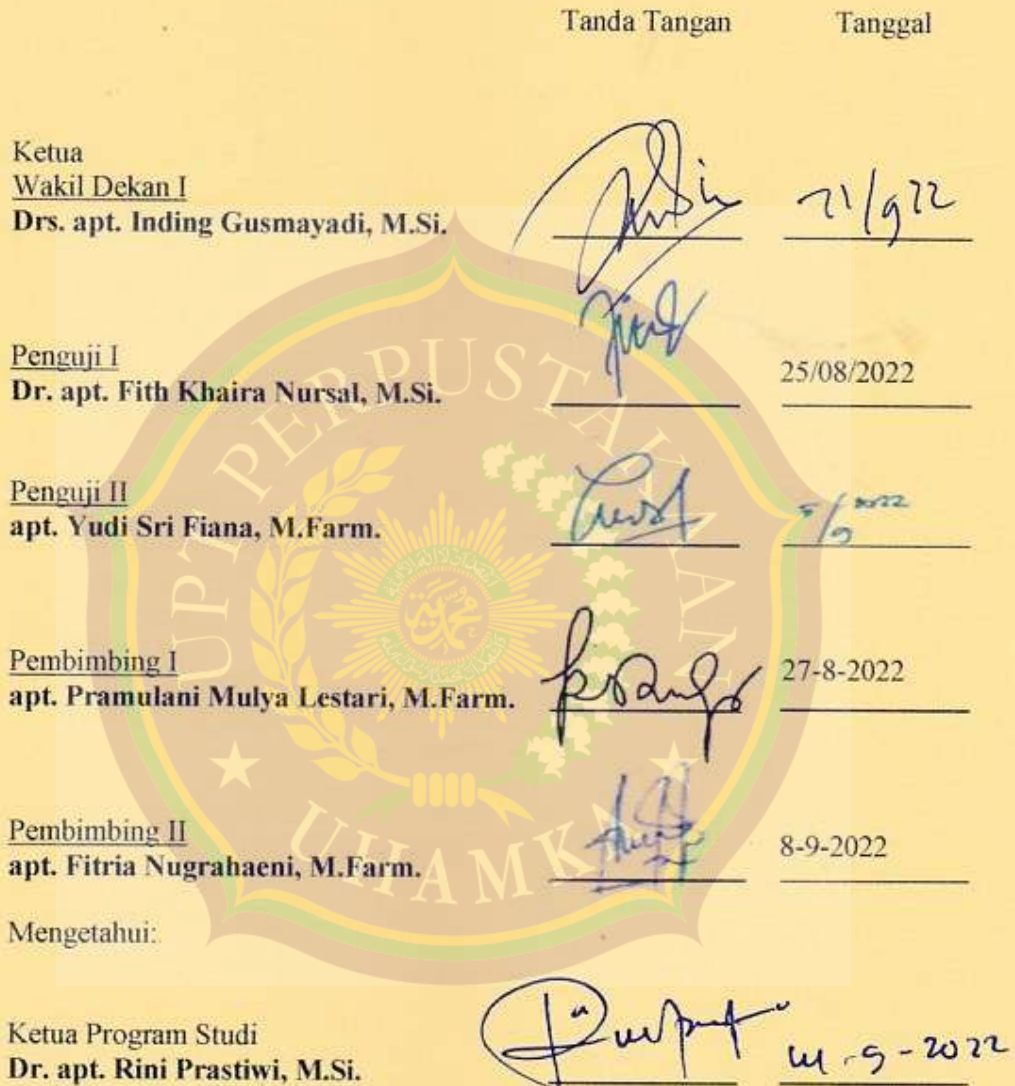 Tanda Tangan Tanggal
Ketua
Wakil Dekan I
Drs. apt. Inding Gusmayadi, M.Si.
Penguji I
Dr. apt. Fith Khaira Nursal, M.Si. 25/08/2022
Penguji II
apt. Yudi Sri Fiana, M.Farm. 5/9 2022
Pembimbing I
apt. Pramulani Mulya Lestari, M.Farm. 27-8-2022
Pembimbing II
apt. Fitria Nugrahaeni, M.Farm. 8-9-2022
Mengetahui:
Ketua Program Studi
Dr. apt. Rini Prastiwi, M.Si. -9-2022
UPT PERPUSTAKAAN
UHAMKA